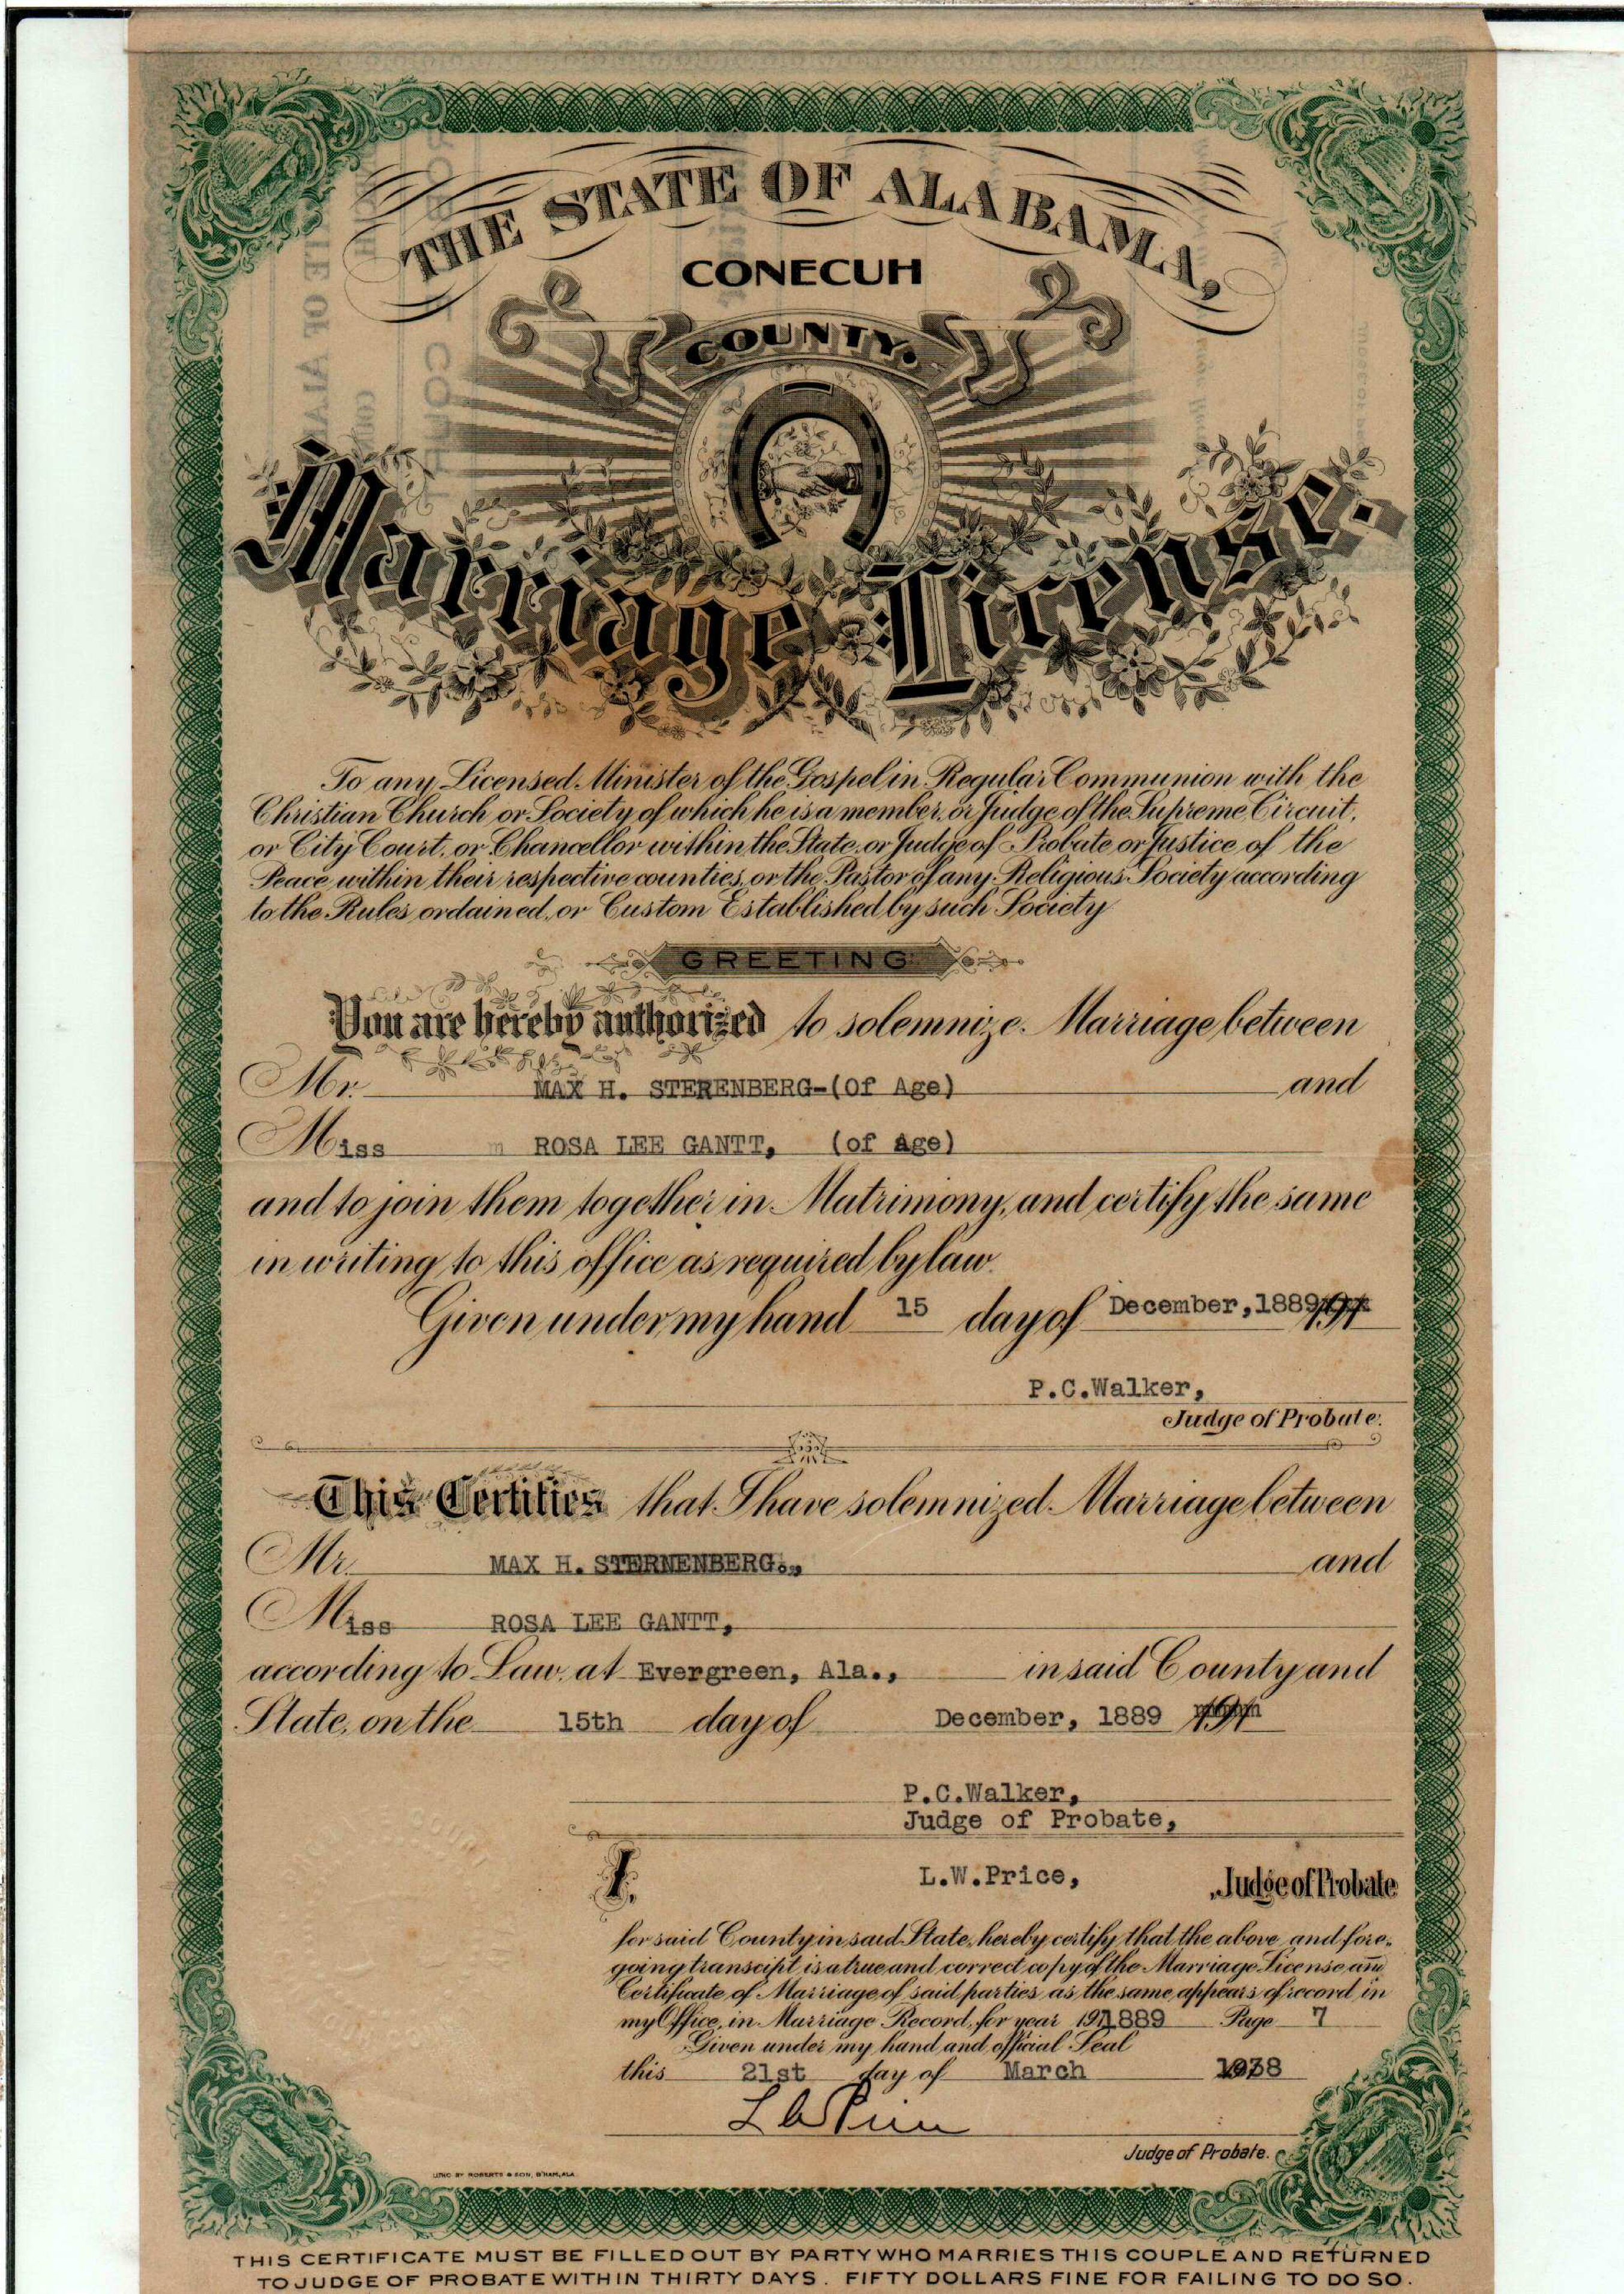 THE STATE OF ALABAMA,
CONECUH
COUNTY.
Marriage License.
To any Licensed Minister of the Gospel in Regular Communion with the
Christian Church or Society of which he is a member, or Judge of the Supreme, Circuit,
or City Court, or Chancellor within the State, or Judge of Probate or Justice of the
Peace within their respective counties, or the Pastor of any Religious Society according
to the Rules ordained, or Custom Established by such Society
GREETING:
You are hereby authorized to solemnize Marriage between
Mr. MAX H. STERENBERG-(Of Age) and
Miss ROSA LEE GANTT, (of Age)
and to join them together in Matrimony, and certify the same
in writing to this office as required by law.
Given under my hand 15 day of December, 1889 191
P.C.Walker,
Judge of Probate.
This Certifies that I have solemnized Marriage between
Mr. MAX H. STERNENBERG., and
Miss ROSA LEE GANTT,
according to Law, at Evergreen, Ala., in said County and
State, on the 15th day of December, 1889 191
P.C.Walker,
Judge of Probate,
I, L.W.Price, Judge of Probate
for said County in said State, hereby certify that the above and fore-
going transcipt is a true and correct copy of the Marriage License and
Certificate of Marriage of said parties as the same appears of record in
my Office, in Marriage Record, for year 191 1889 Page 7
Given under my hand and official Seal
this 21st day of March 1938
L W Price
Judge of Probate.
LITHO BY ROBERTS & SON, B'HAM, ALA.
THIS CERTIFICATE MUST BE FILLED OUT BY PARTY WHO MARRIES THIS COUPLE AND RETURNED
TO JUDGE OF PROBATE WITHIN THIRTY DAYS. FIFTY DOLLARS FINE FOR FAILING TO DO SO.